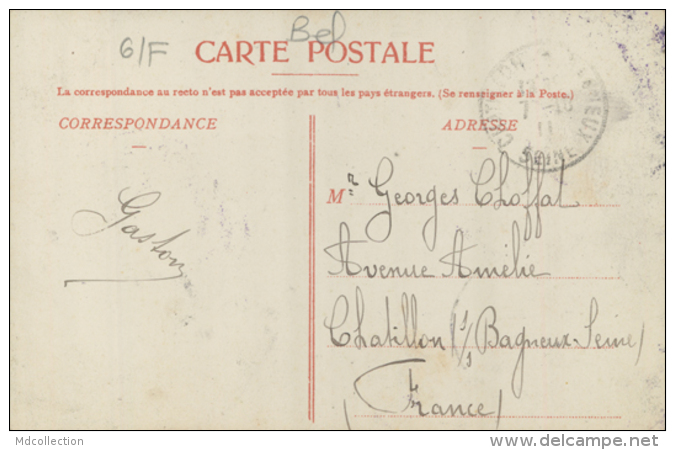 6/F
Bel
CARTE POSTALE
La correspondance au recto n'est pas acceptée par tous les pays étrangers. (Se renseigner à la Poste.)
CORRESPONDANCE
ADRESSE
SEINE
11
Mr Georges Choffat
Gaston
Avenue Amélie
Chatillon s/s Bagneux-Seine
(France)
Mdcollection
www.delcampe.net